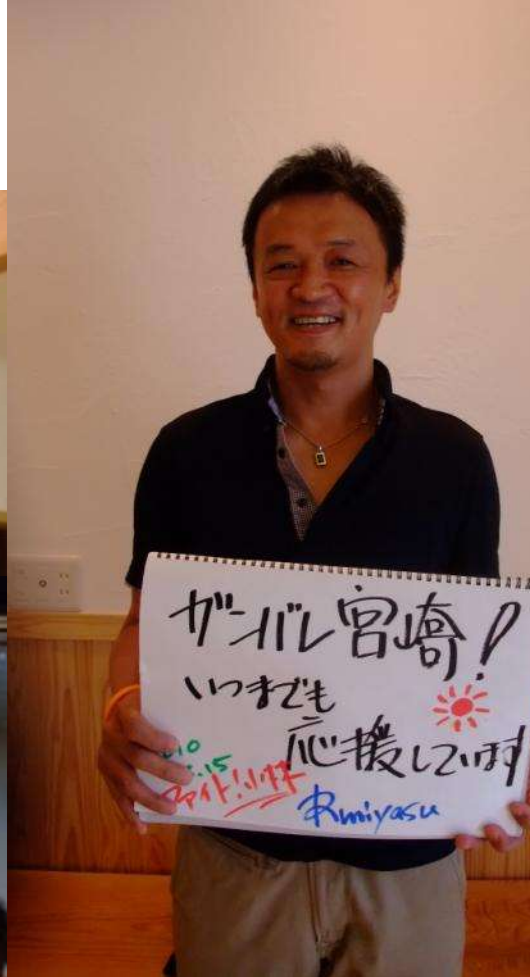 ガンバレ宮崎!
いつまでも
応援しています
.15
ファイト!小林
miyasu